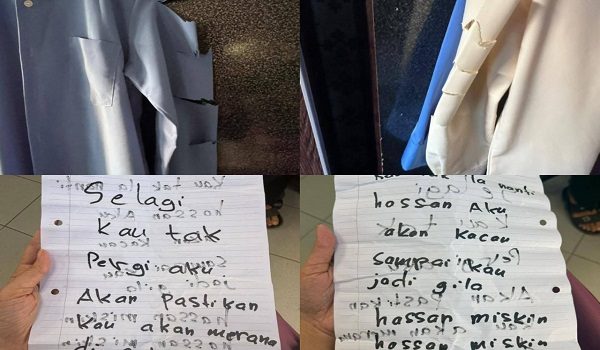 Selagi
kau tak
Pergi aku
Akan Pastikan
kau akan merana
gila nanti
hossan Aku
akan kacau
sampai kau
jadi gila
hassan miskin
hassan miskin